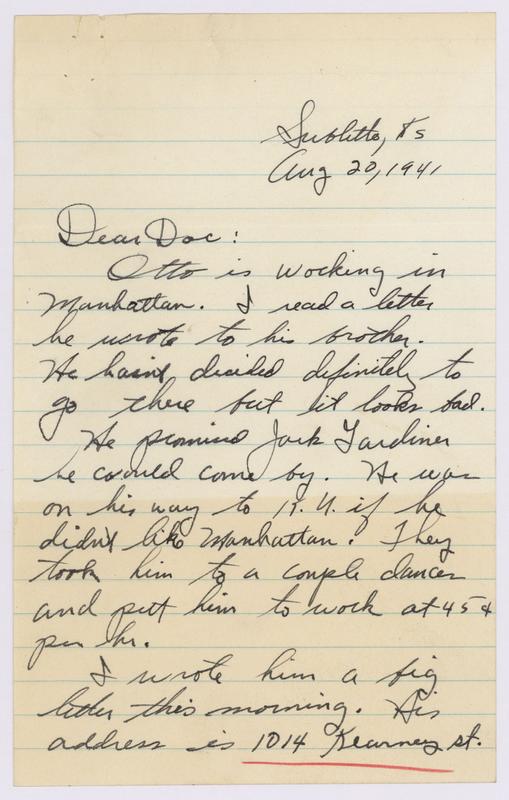 Sublette, Ks
Aug 20, 1941
Dear Doc:
Otto is working in
Manhattan. I read a letter
he wrote to his brother.
He hasnt decided definitely to
go there but it looks bad.
He promised Jack Gardiner
he would come by. He was
on his way to K. U. if he
didn't like Manhattan. They
took him to a couple dances
and put him to work at 45¢
per hr.
I wrote him a big
letter this morning. His
address is 1014 Kearney st.